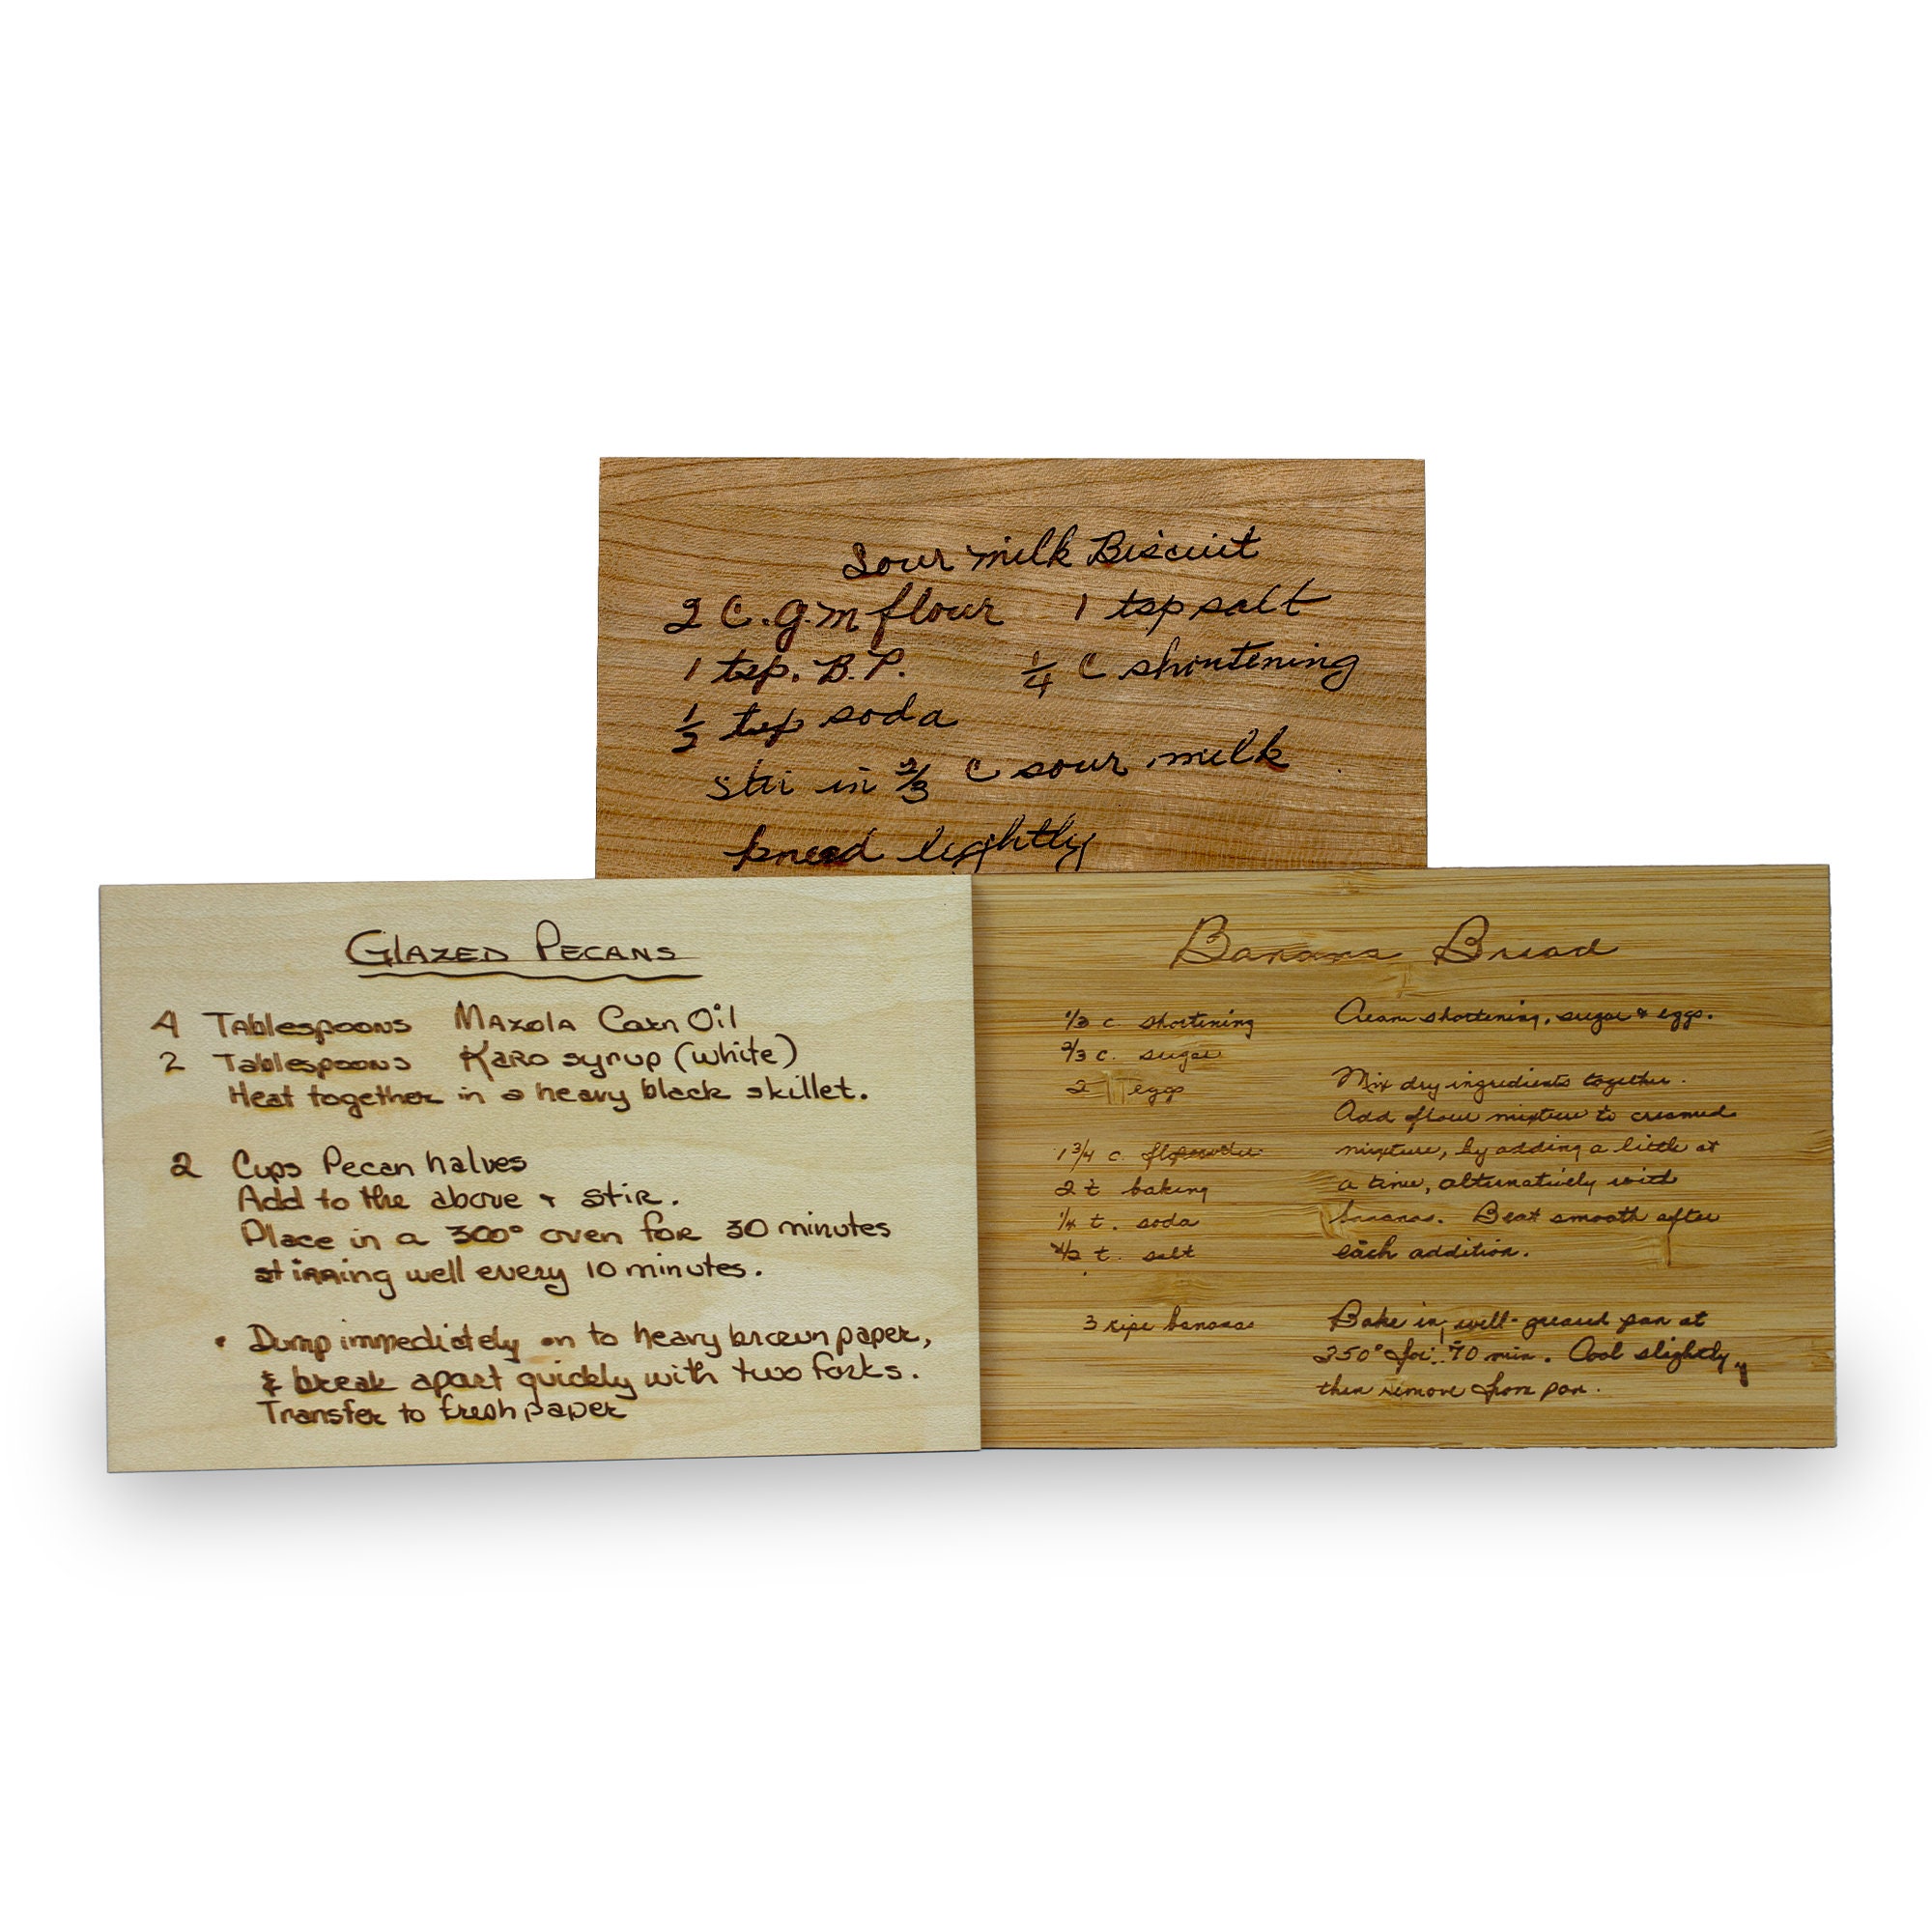 Sour milk Biscuit
2 C. G.M flour 1 tsp salt
1 tsp. B.P. 1/4 C shortening
1/2 tsp soda
Stir in 2/3 C sour milk
knead lightly
GLAZED PECANS
4 Tablespoons MAZOLA Corn Oil
2 Tablespoons KARO syrup (white)
Heat together in a heavy black skillet.
2 Cups Pecan halves
Add to the above & stir.
Place in a 300° oven for 30 minutes
stirring well every 10 minutes.
• Dump immediately on to heavy brown paper,
& break apart quickly with two forks.
Transfer to fresh paper
Banana Bread
1/3 c. shortening
2/3 c. sugar
2 eggs
1 3/4 c.
2 t baking
1/4 t. soda
1/2 t. salt
3 ripe bananas
Cream shortening, sugar & eggs.
Mix dry ingredients together.
Add flour mixture to creamed
mixture, by adding a little at
a time, alternatively with
bananas. Beat smooth after
each addition.
Bake in well-greased pan at
350° for 70 min. Cool slightly,
then remove from pan.